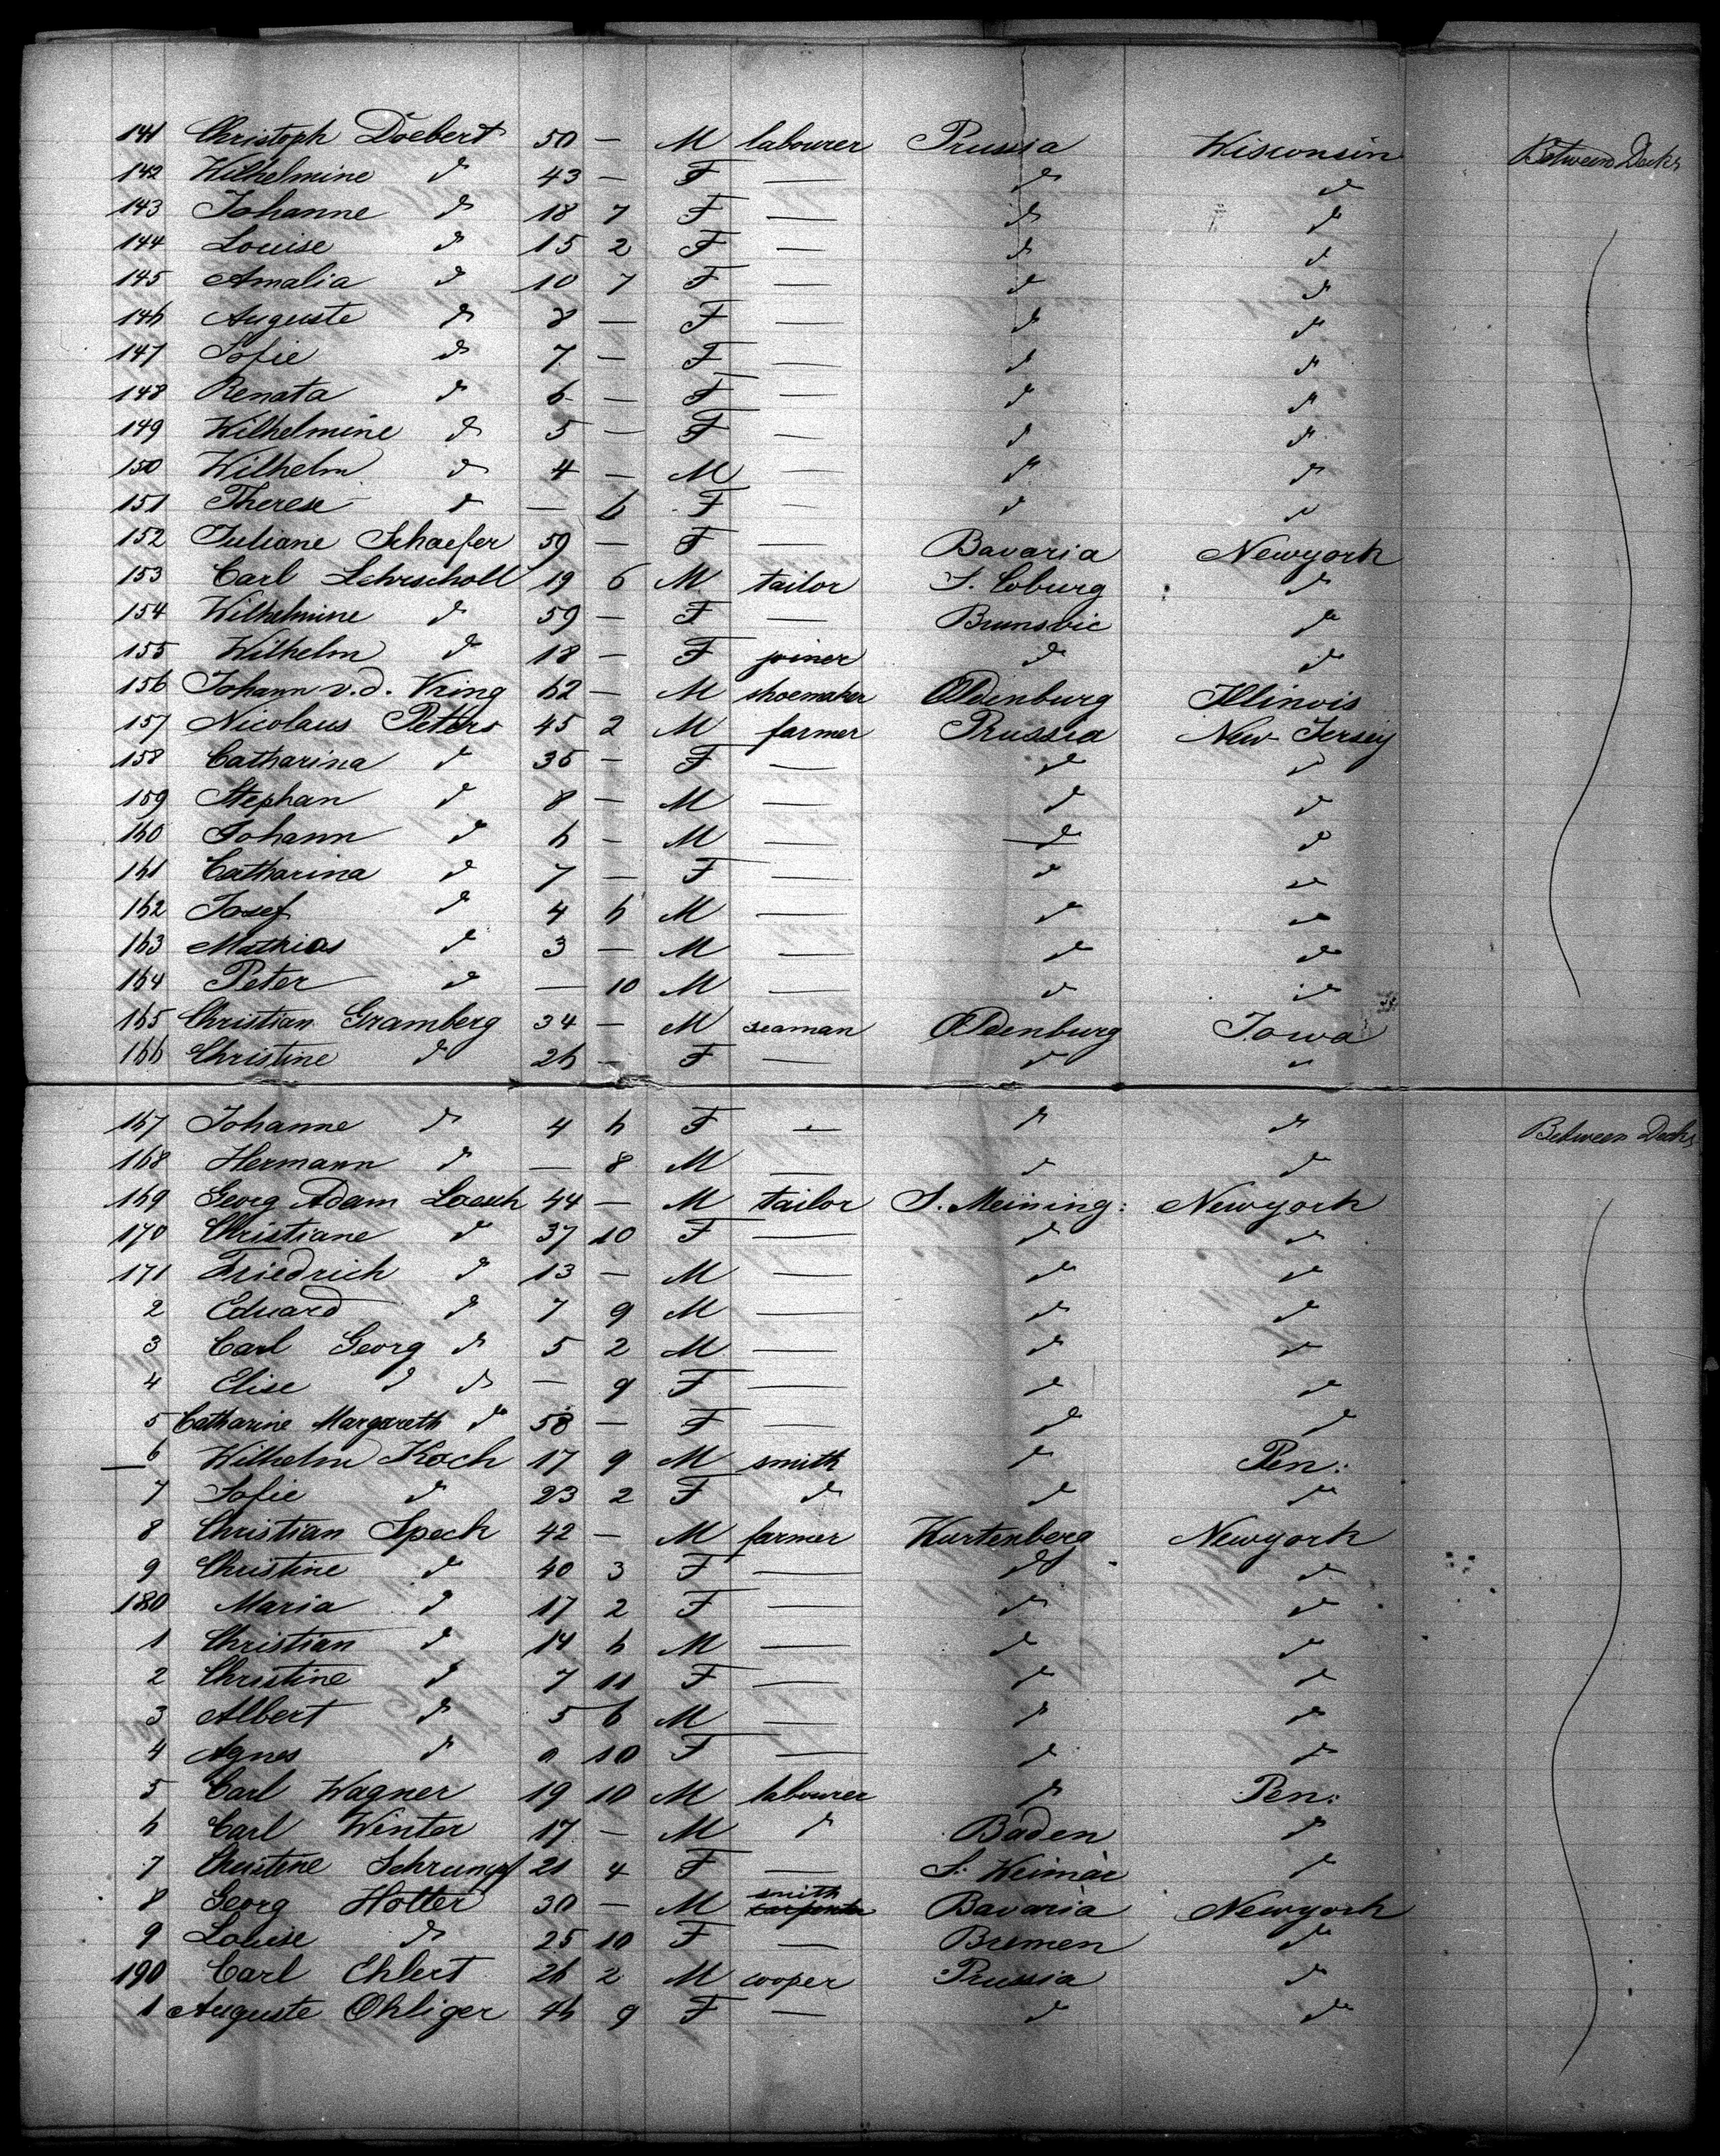 141 Christoph Doebert 50 — M labourer Prussia Wisconsin Between Decks
142 Wilhelmine d 43 — F — d d
143 Johanne d 18 7 F — d d
144 Louise d 15 2 F — d d
145 Amalia d 10 7 F — d d
146 Auguste d 8 — F — d d
147 Sofie d 7 — F — d d
148 Renata d 6 — F — d d
149 Wilhelmine d 5 — F — d d
150 Wilhelm d 4 — M — d d
151 Therese d — 6 F — d d
152 Juliane Schaefer 59 — F — Bavaria Newyork
153 Carl Lehrscholl 19 6 M tailor S. Coburg d
154 Wilhelmine d 59 — F — Brunsvic d
155 Wilhelm d 18 — F joiner d d
156 Johann v.d. Vring 62 — M shoemaker Oldenburg Illinois
157 Nicolaus Peters 45 2 M farmer Prussia New Jersey
158 Catharina d 36 — F — d d
159 Stephan d 8 — M — d d
160 Johann d 6 — M — d d
161 Catharina d 7 — F — d d
162 Josef d 4 6 M — d d
163 Mathias d 3 — M — d d
164 Peter d — 10 M — d d
165 Christian Gramberg 34 — M seaman Oldenburg Iowa
166 Christine d 26 — F — d d
167 Johanne d 4 6 F — d d Between Decks
168 Hermann d — 8 M — d d
169 Georg Adam Loesch 44 — M tailor S. Meining: Newyork
170 Christiane d 37 10 F — d d
171 Friedrich d 13 — M — d d
2 Eduard d 7 9 M — d d
3 Carl Georg d 5 2 M — d d
4 Elise d d — 9 F — d d
5 Catharine Margareth d 58 — F — d d
6 Wilhelm Koch 17 9 M smith d Pen:
7 Sofie d 23 2 F d d d
8 Christian Speck 42 — M farmer Wurtenberg Newyork
9 Christine d 40 3 F — d d
180 Maria d 17 2 F — d d
1 Christian d 14 6 M — d d
2 Christine d 7 11 F — d d
3 Albert d 5 6 M — d d
4 Agnes d 10 F — d d
5 Carl Wagner 19 10 M labourer d Pen:
6 Carl Winter 17 — M d Baden d
7 Christine Schrumpf 21 4 F — S. Weimar d
8 Georg Hotter 30 — M smith carpenter Bavaria Newyork
9 Louise d 25 10 F — Bremen d
190 Carl Ehlert 26 2 M cooper Prussia d
1 Auguste Ohliger 46 9 F — d d